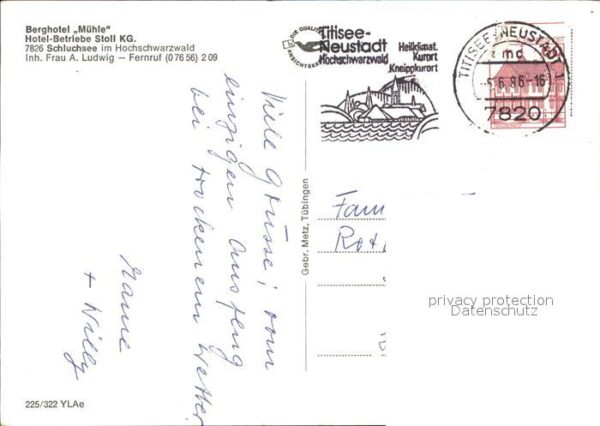 Berghotel „Mühle"
Hotel-Betriebe Stoll KG.
7826 Schluchsee im Hochschwarzwald
Inh. Frau A. Ludwig — Fernruf (0 76 56) 2 09
DIE QUALITÄTS
ANSICHTSKARTE
Titisee-
Neustadt
Hochschwarzwald
Heilklimat.
Kurort
Kneippkurort
TITISEE-NEUSTADT 1
mc
-5.6.86-16
7820
Viele Grüsse, vom
einzigen Ausflug
bei trockenem Wetter
+ Willy
Gebr. Metz, Tübingen
Fam
Rot
privacy protection
Datenschutz
225/322 YLAe